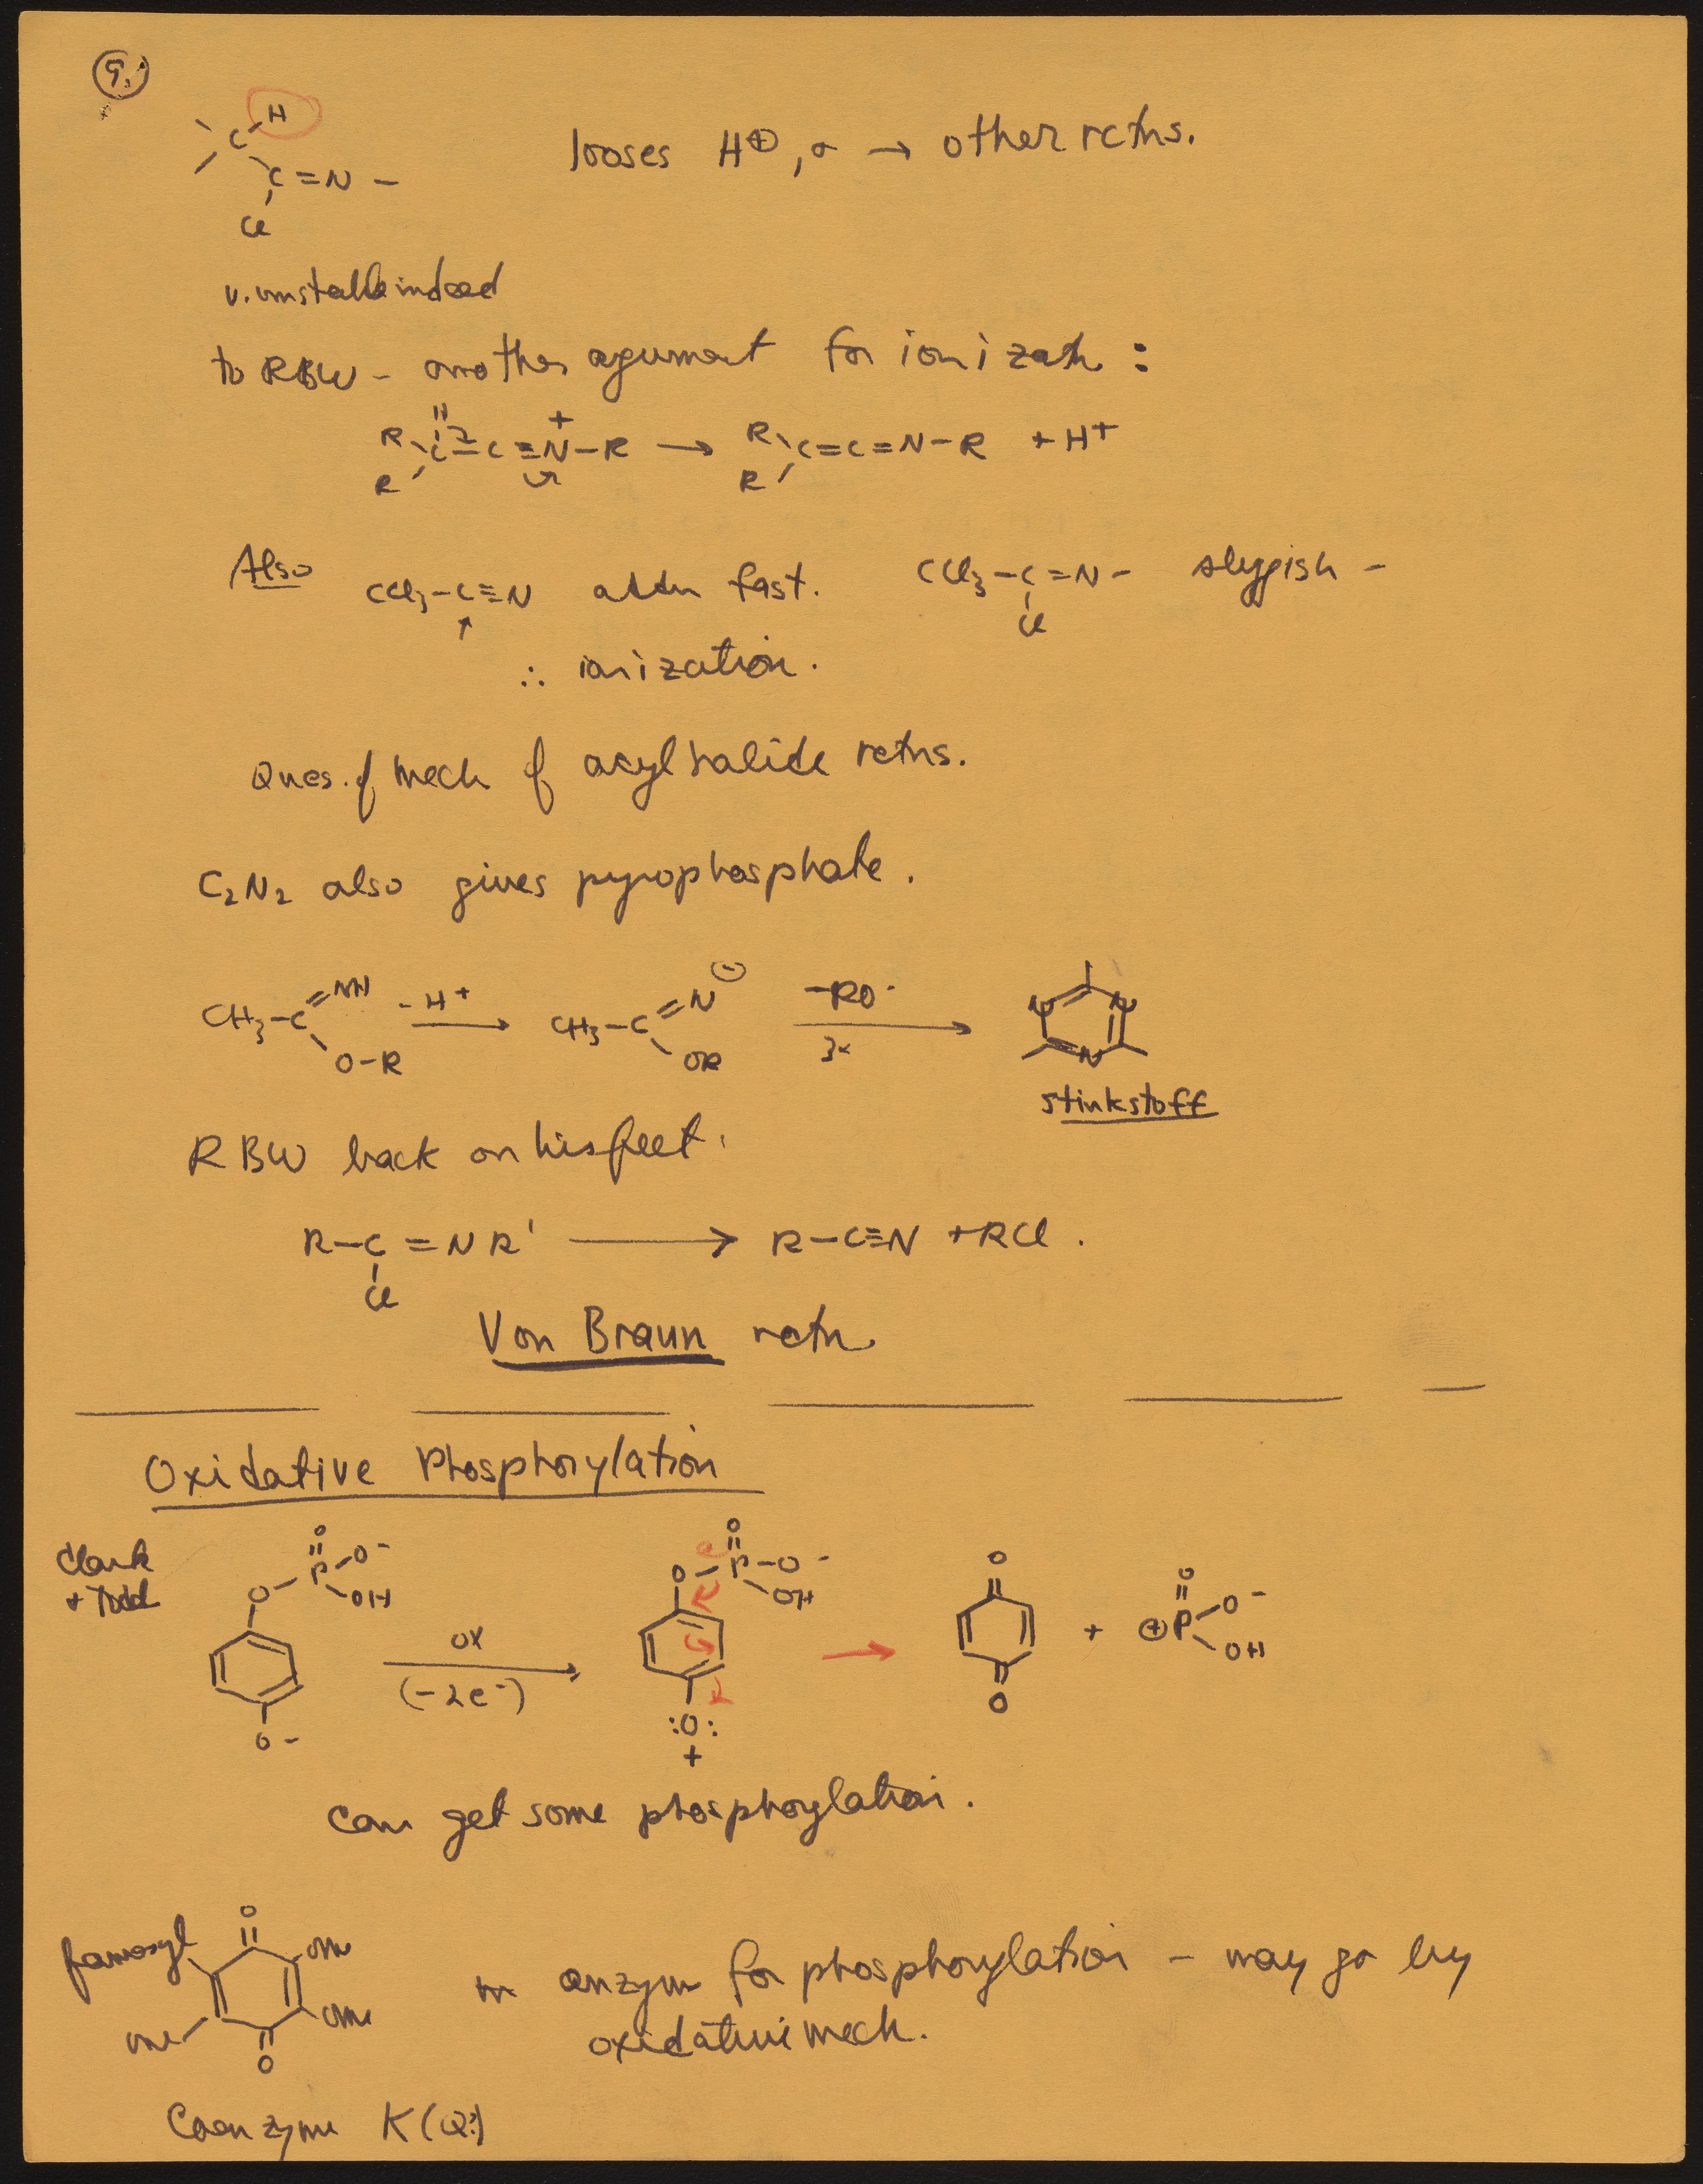 9.
H
C
C=N-
Cl
looses H⊕, or → other rctns.
v. unstable indeed
to RBW - another agument for ionizatn :
H +
R C-C≡N-R → R C=C=N-R + H+
R R
Also CCl3-C≡N attn fast. CCl3-C=N- sluggish -
↑ Cl
∴ ionization.
Ques. of mech of acyl halide rctns.
C2N2 also gives pyrophosphate.
CH3-C=NH -H+ → CH3-C=N⊖ -RO- → N N N
O-R OR 3x
stinkstoff
RBW back on his feet.
R-C=NR' → R-C≡N + RCl.
Cl
Von Braun rctn
Oxidative Phosphorylation
Clark
+ Todd
O O O O
O-P-O- O-P-O- O + ⊕P-O-
OH OH OH
ox →
(-2e-)
O- :O: O
+
can get some phosphorylation.
O
farnesyl OMe
OMe
O
enzym for phosphorylation - may go by
oxidative mech.
Coenzyme K(Q?)